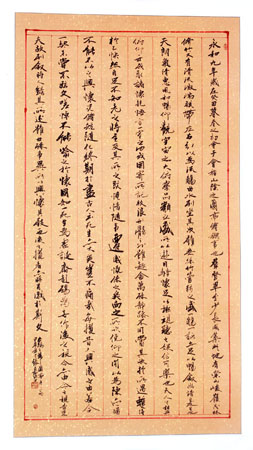 永和九年歲在癸丑暮春之初會于會稽山陰之蘭亭修禊事也羣賢畢至少長咸集此地有崇山峻嶺茂林
修竹又有清流激湍映帶左右引以為流觴曲水列坐其次雖無絲竹管弦之盛一觴一詠亦足以暢敘幽情是日也
天朗氣清惠風和暢仰觀宇宙之大俯察品類之盛所以遊目騁懷足以極視聽之娛信可樂也夫人之相與
俯仰一世或取諸懷抱悟言一室之內或因寄所託放浪形骸之外雖趣舍萬殊靜躁不同當其欣於所遇暫得
於己快然自足不知老之將至及其所之既倦情隨事遷感慨係之矣向之所欣俛仰之間以為陳迹猶
不能不以之興懷況脩短隨化終期於盡古人云死生亦大矣豈不痛哉每攬昔人興感之由若合
一契未嘗不臨文嗟悼不能喻之於懷固知一死生為虛誕齊彭殤為妄作後之視今亦由今之視昔悲
夫故列敘時人錄其所述雖世殊事異所以興懷其致一也後之覽者亦將有感於斯文